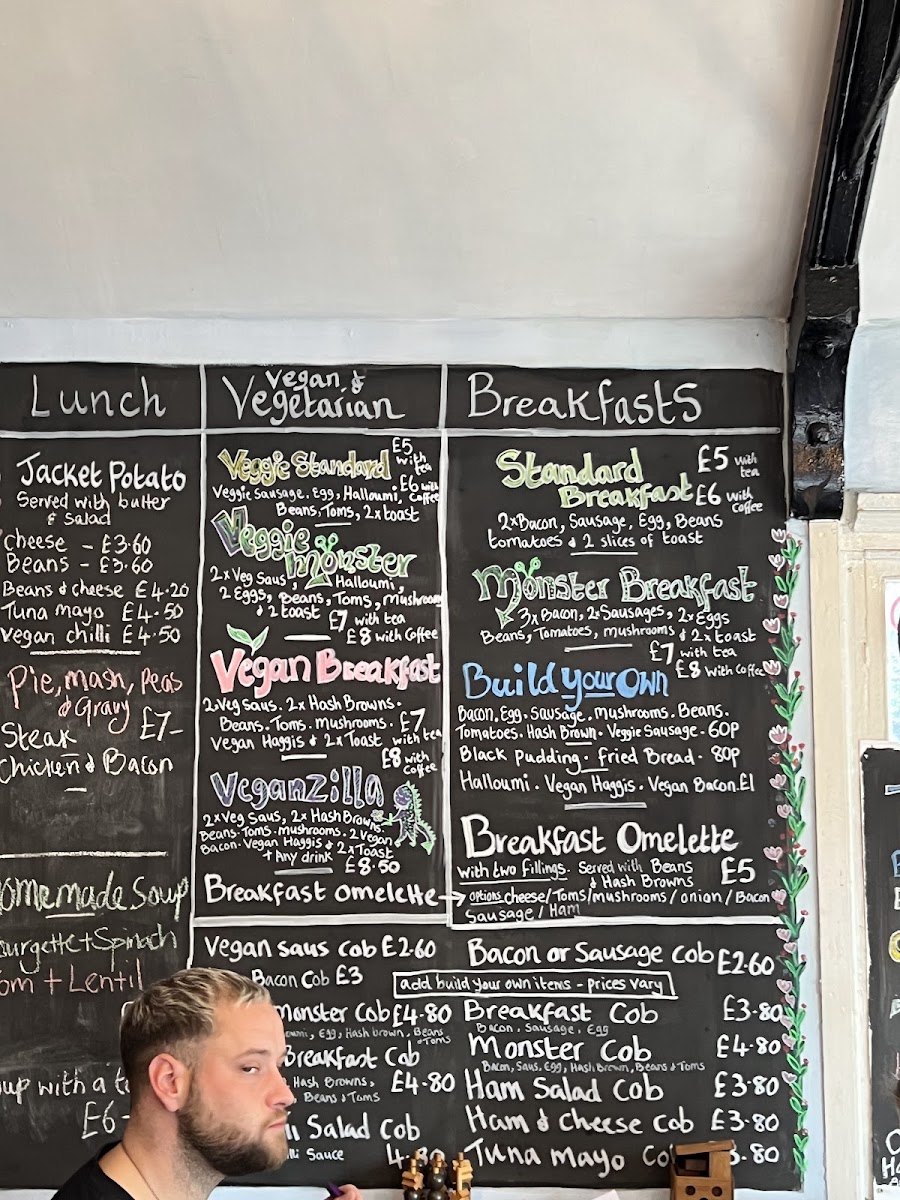 Lunch
Jacket Potato
Served with butter
& Salad
cheese - £3·60
Beans - £3·60
Beans & cheese £4·20
Tuna mayo £4·50
Vegan chilli £4·50
Pie, mash, Peas
& Gravy £7-
Steak
Chicken & Bacon
Soup
+ Spinach
+ Lentil
with a
£6-
Vegan &
Vegetarian
Veggie Standard £5 with tea
£6 with Coffee
Veggie Sausage. Egg, Halloumi,
Beans, Toms, 2x toast
Veggie Monster
2x Veg Saus, Halloumi,
2 Eggs, Beans, Toms, Mushroom
& 2 toast £7 with tea
£8 with Coffee
Vegan Breakfast
2xVeg Saus. 2x Hash Browns.
Beans. Toms. mushrooms. £7
Vegan Haggis & 2x Toast with tea
£8 with Coffee
Veganzilla
2x Veg Saus, 2x Hash Browns
Beans. Toms. mushrooms. 2 Vegan
Bacon. Vegan Haggis & 2x Toast
+ Any drink £8·50
Breakfast omelette →
Breakfasts
Standard £5 with tea
Breakfast £6 with Coffee
2xBacon, Sausage, Egg, Beans
tomatoes & 2 slices of toast
Monster Breakfast
3x Bacon, 2x Sausages, 2x Eggs
Beans, Tomatoes, mushrooms & 2x toast
£7 with tea
£8 with Coffee
Build Your Own
Bacon. Egg. Sausage. Mushrooms. Beans.
Tomatoes. Hash Brown. Veggie Sausage - 60p
Black Pudding. Fried Bread. 80p
Halloumi. Vegan Haggis. Vegan Bacon. £1
Breakfast Omelette
with two fillings. Served with Beans £5
& Hash Browns
options cheese/Toms/mushrooms/onion/Bacon
Sausage / Ham
Vegan saus cob £2·60
Bacon Cob £3
monster Cob £4·80
Egg, Hash brown, Beans
& Toms
Breakfast Cob
Hash Browns, £4·80
Beans & Toms
Salad Cob
Sauce
Bacon or Sausage Cob £2·60
add build your own items - prices vary
Breakfast Cob £3·80
Bacon, Sausage, Egg
Monster Cob £4·80
Bacon, Saus, Egg, Hash Brown, Beans & Toms
Ham Salad Cob £3·80
Ham & Cheese Cob £3·80
Tuna mayo